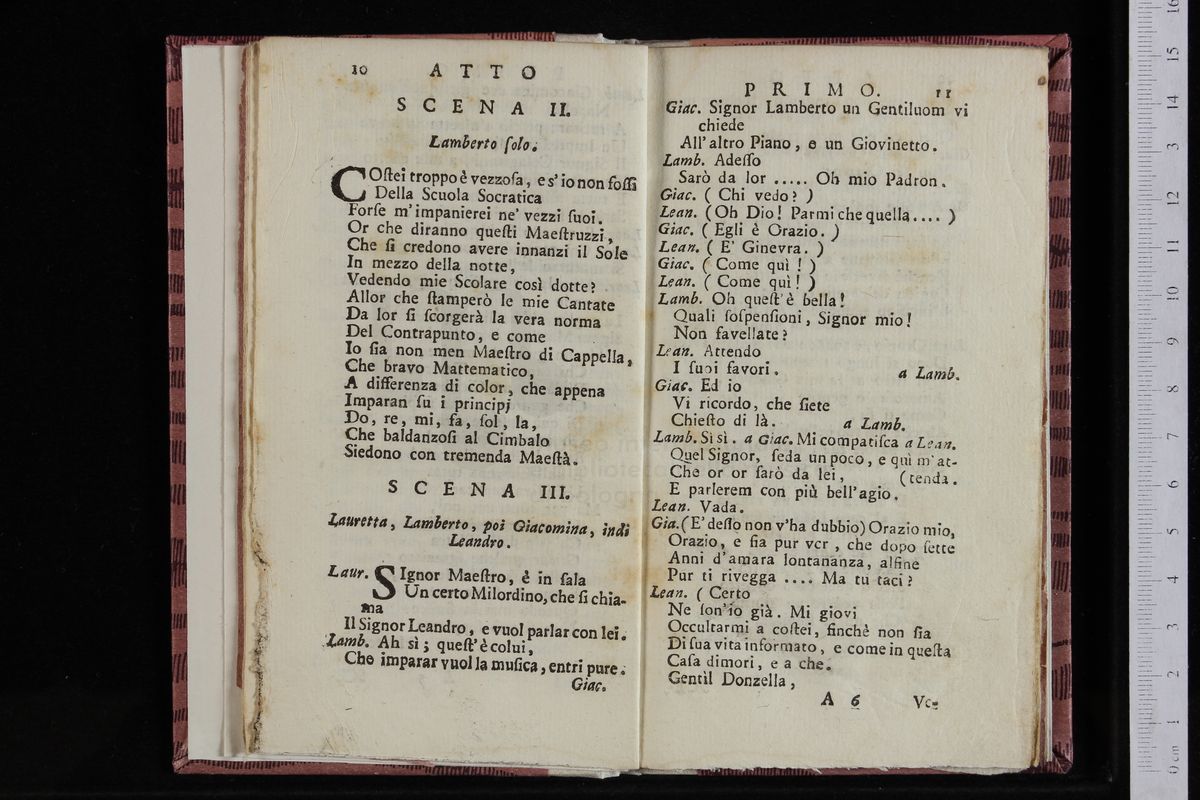 10 ATTO
SCENA II.
Lamberto ſolo.
COſtei troppo è vezzoſa, e s' io non foſſi
Della Scuola Socratica
Forſe m' impanierei ne' vezzi ſuoi.
Or che diranno queſti Maeſtruzzi,
Che ſi credono avere innanzi il Sole
In mezzo della notte,
Vedendo mie Scolare così dotte?
Allor che ſtamperò le mie Cantate
Da lor ſi ſcorgerà la vera norma
Del Contrapunto, e come
Io ſia non men Maeſtro di Cappella,
Che bravo Mattematico,
A differenza di color, che appena
Imparan ſu i principj
Do, re, mi, fa, ſol, la,
Che baldanzoſi al Cimbalo
Siedono con tremenda Maeſtà.
SCENA III.
Lauretta, Lamberto, poi Giacomina, indi
Leandro.
Laur. SIgnor Maeſtro, è in ſala
Un certo Milordino, che ſi chia-
ma
Il Signor Leandro, e vuol parlar con lei.
Lamb. Ah sì; queſt' è colui,
Che imparar vuol la muſica, entri pure.
Giac.
PRIMO. 11
Giac. Signor Lamberto un Gentiluom vi
chiede
All' altro Piano, e un Giovinetto.
Lamb. Adeſſo
Sarò da lor ..... Oh mio Padron.
Giac. ( Chi vedo? )
Lean. (Oh Dio! Parmi che quella.... )
Giac. ( Egli è Orazio. )
Lean. ( E' Ginevra. )
Giac. ( Come quì ! )
Lean. ( Come quì ! )
Lamb. Oh queſt' è bella!
Quali ſoſpenſioni, Signor mio!
Non favellate?
Lean. Attendo
I ſuoi favori. a Lamb.
Giac. Ed io
Vi ricordo, che ſiete
Chieſto di là. a Lamb.
Lamb. Sì sì. a Giac. Mi compatiſca a Lean.
Quel Signor, ſeda un poco, e quì m' at-
Che or or ſarò da lei, (tenda.
E parlerem con più bell' agio.
Lean. Vada.
Gia. (E' deſſo non v'ha dubbio) Orazio mio,
Orazio, e ſia pur ver, che dopo ſette
Anni d' amara lontananza, alfine
Pur ti rivegga .... Ma tu taci?
Lean. ( Certo
Ne ſon' io già. Mi giovi
Occultarmi a coſtei, finchè non ſia
Di ſua vita informato, e come in queſta
Caſa dimori, e a che.
Gentìl Donzella,
A 6 Ve-
0 cm 1 2 3 4 5 6 7 8 9 10 11 12 13 14 15 16